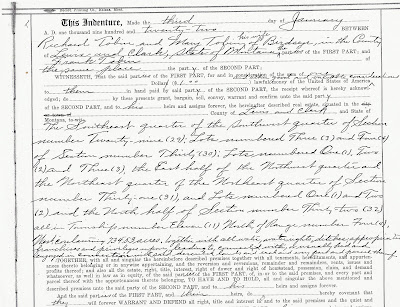 This Indenture, Made the third day of January
A. D. one thousand nine hundred and twenty-two BETWEEN
Richard Tobin and Mary Tobin, his wife, of Birdseye, in the County
of Lewis and Clark, State of Montana, part ies of the FIRST PART; and
Frank Tobin
the same place part y of the SECOND PART;
WITNESSETH, That the said part ies of the FIRST PART, for and
Dollar ($1.00 lawful money of the United States of America
to them in hand paid by said part y of the SECOND PART, the receipt whereof is hereby acknowl-
edged, do by these presents grant, bargain, sell, convey, warrant and confirm unto the said part y
of the SECOND PART, and to his heirs and assigns forever, the hereinafter described real estate, situated in the
County of Lewis and Clark and State of
Montana, to-wit:
The Southeast quarter of the Southwest quarter of Section
number Twenty-nine (29), Lots numbered Three (3) and Four (4)
of Section number Thirty (30); Lots numbered One (1), Two
(2) and Three (3) the East half of the Northwest quarter and
the Northeast quarter of the Northeast quarter of Section
number Thirty-one (31), and Lots numbered One (1) and Two
(2) and the North half of Section number Thirty-two (32)
all in Township number Eleven (11) North of Range number Four (4)
West containing acres, together with all water, water rights, ditches
TOGETHER, with all and singular the hereinbefore described premises together with all tenements, hereditaments, and appurten-
ances thereto belonging or in anywise appertaining, and the reversion and reversions, remainder and remainders, rents, issues and
profits thereof; and also all the estate, right, title, interest, right of dower and right of homestead, possession, claim, and demand
whatsoever, as well in law as in equity, of the said part ies of the FIRST PART, of, in or to the said premises, and every part and
parcel thereof, with the appurtenances thereto belonging, TO HAVE AND TO HOLD, all and singular the above mentioned and
described premises unto the said part y of the SECOND PART, and to his heirs and assigns forever.
And the said part ies of the FIRST PART, and their heirs, do hereby covenant that
they will forever WARRANT AND DEFEND all right, title and interest in and to the said premises and the quiet and